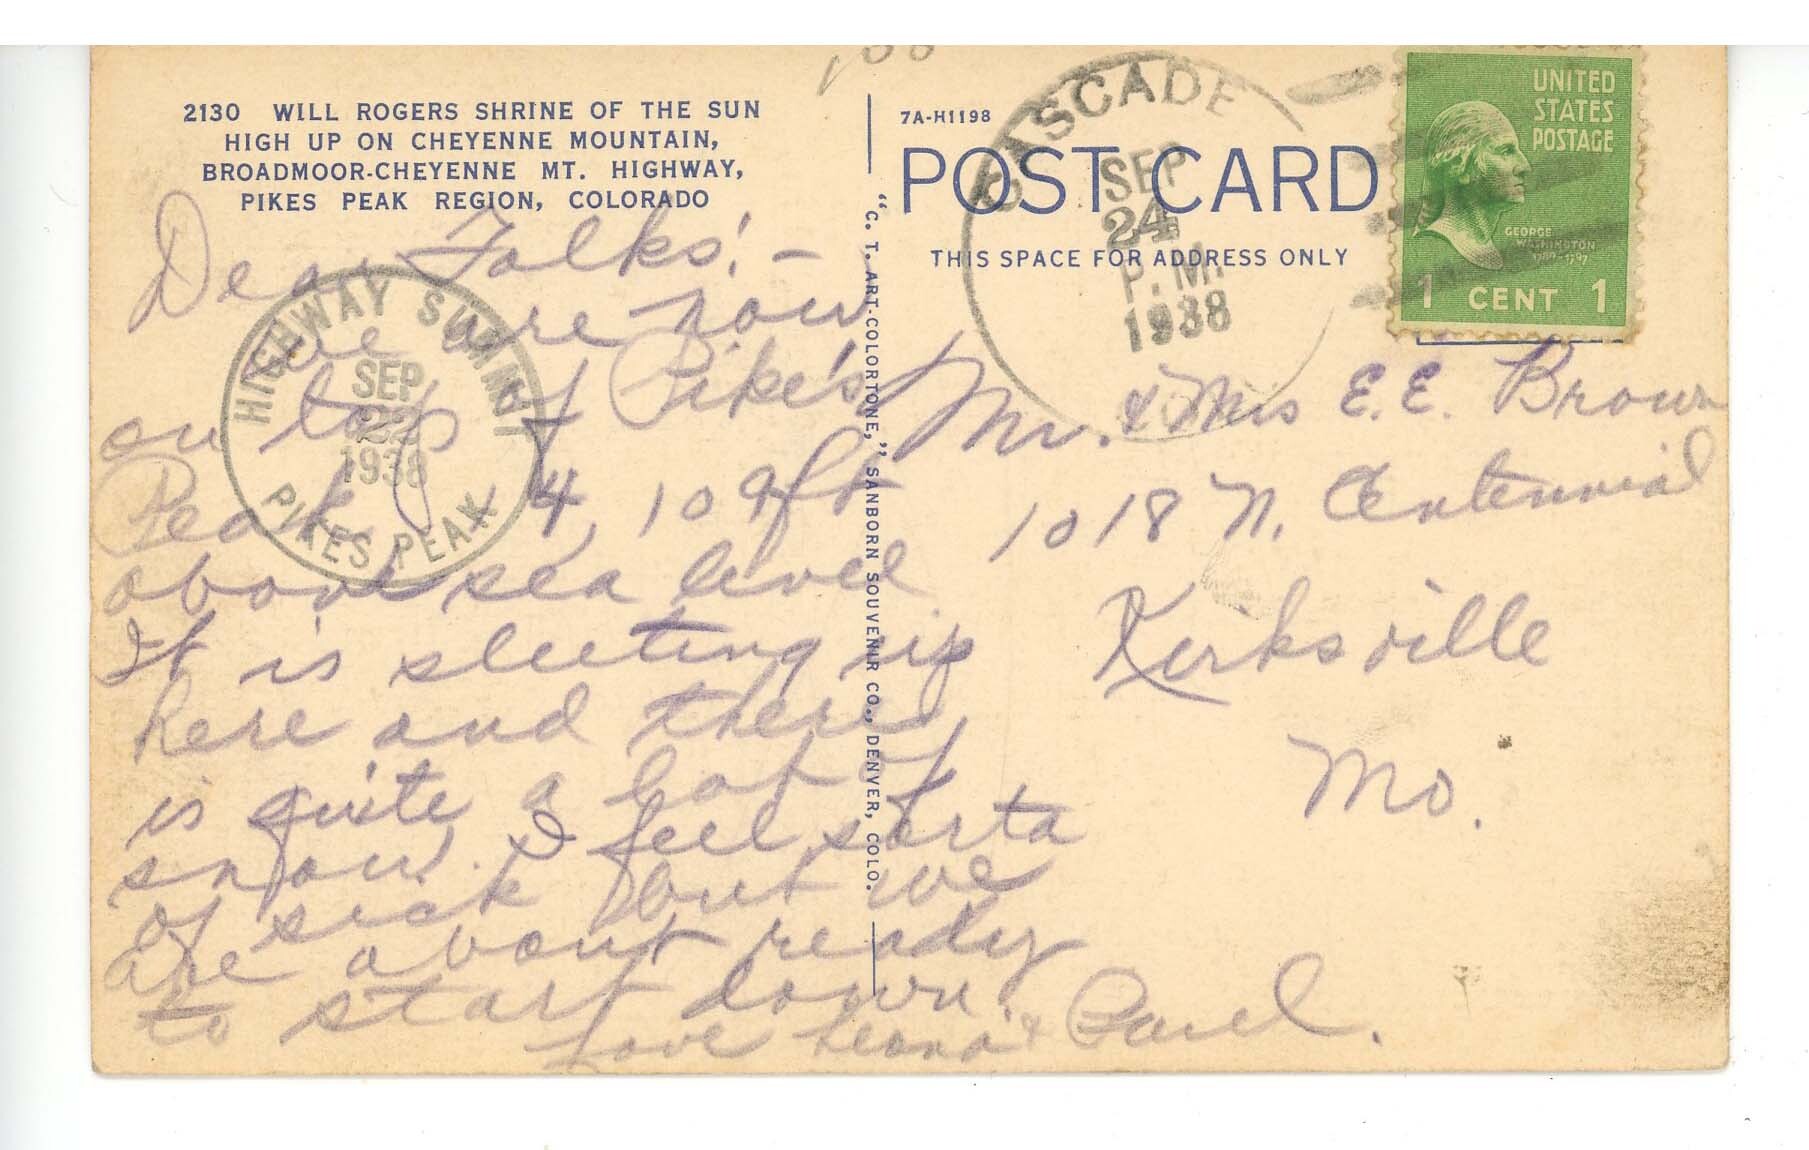 2130 WILL ROGERS SHRINE OF THE SUN
HIGH UP ON CHEYENNE MOUNTAIN,
BROADMOOR-CHEYENNE MT. HIGHWAY,
PIKES PEAK REGION, COLORADO
Dear Folks:-
We are now
on top of Pike's
Peak, 14,109 ft
above sea level.
It is sleeting up
here and there
is quite a lot of
snow. I feel sorta
of sick but we
are about ready
to start down.
Love Leona & Paul.
HIGHWAY SUMMIT
SEP
22
1938
PIKES PEAK
"C. T. ART-COLORTONE," SANBORN SOUVENIR CO., DENVER, COLO.
7A-H1198
POST CARD
THIS SPACE FOR ADDRESS ONLY
CASCADE
SEP
24
P.M.
1938
UNITED
STATES
POSTAGE
GEORGE
WASHINGTON
1789-1797
1 CENT 1
Mr. & Mrs E.E. Brown
1018 N. Centennial
Kirksville
Mo.